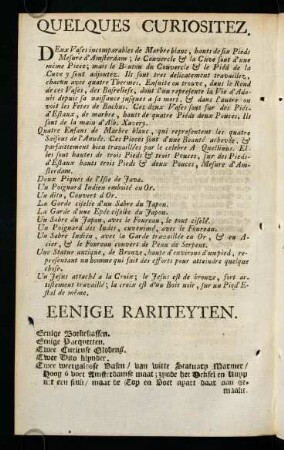 QUELQUES CURIOSITEZ.
DEux Vases incomparables de Marbre blanc, hauts de six Pieds
Mesure d'Amsterdam; le Couvercle & la Cuve sont d'une
même Piece; mais le Bouton du Couvercle & le Piéd de la
Cuve y sont ajoutez. Ils sont tres delicatement travaillez,
chacun avec quatre Thermes. Ensuite on trouve, dans le Rond
de ces Vases, des Basreliefs, dont l'un represente la Vie d'Ado-
nis depuis sa naissance jusques a sa mort, & dans l'autre on
voit les Fêtes de Bachus. Ces deux Vases sont sur des Piéds
d'Estaux, de marbre, hauts de quatre Piéds deux Pouces. Ils
sont de la main d'Alb. Xavery.
Quatre Enfans de Marbre blanc, qui representent les quatre
Saisons de l'Année. Ces Pieces sont d'une Beauté achevée, &
parfaitement bien travaillées par le celebre A Quellinus. El-
les sont hautes de trois Pieds & trois Pouces, sur des Pieds-
d'Estaux hauts trois Pieds & deux Pouces, Mesure d'Am-
sterdam.
Deux Piques de l'Isle de Java.
Un Poignard Indien emboité en Or.
Un dito, Couvert d'Or.
La Garde ciselée d'un Sabre du Japon.
La Garde d'une Epée ciselée du Japon.
Un Sabre du Japon, avec le Foureau, le tout ciselé.
Un Poignard des Indes, envenimé, avec le Foureau.
Un Sabre Indien, avec la Garde travaillée en Or, & en A-
cier, & le Foureau couvert de Peau de Serpent.
Une Statue antique, de Bronze, haute d'environs d'un pied, re-
presentant un homme qui fait des efforts pour atteindre quelque
chose.
Un Jesus attaché a la Croix; le Jesus est de bronze, fort ar-
tistement travaillé; la croix est d'un Bois noir, sur un Pied
Estal de même.
EENIGE RARITEYTEN.
Eenige Porselyne
Eenige
Twee Curieuse Globens.
Twee Dito klynder.
Twee weergaloose Vasen, van witte Statuary Marmer,
Hoog 6 voet Amsterdamse maat; zynde het Deksel en Kuyp
uit een stuk, maar de Top en Voet apart daar aan ge-
maakt.